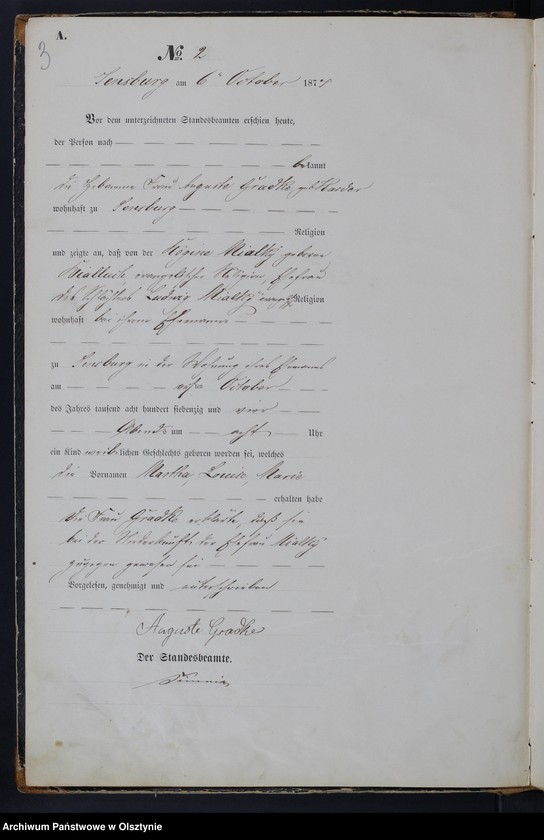 A.
3
No. 2
Sensburg am 6ten October 1874
Vor dem unterzeichneten Standesbeamten erschien heute,
der Person nach
bekannt
die Hebamme Frau Auguste Gradke geb.
wohnhaft zu Sensburg
Religion
und zeigte an, daß von der Mialky geborne
evangelischer Religion, Ehefrau
des Ludwig Mialky evangl. Religion
wohnhaft bei ihrem Ehemanne
zu Sensburg in der Wohnung ihres Ehemanns
am October
des Jahres tausend acht hundert siebenzig und vier
Abends um acht Uhr
ein Kind weiblichen Geschlechts geboren worden sei, welches
die Vornamen Martha, Louise, Marie
erhalten habe
Die Frau Gradke erklärte, daß sie
bei der Niederkunft der Ehefrau Mialky
zugegen gewesen sei
Vorgelesen, genehmigt und unterschrieben
Auguste Gradke
Der Standesbeamte.
Archiwum Państwowe w Olsztynie